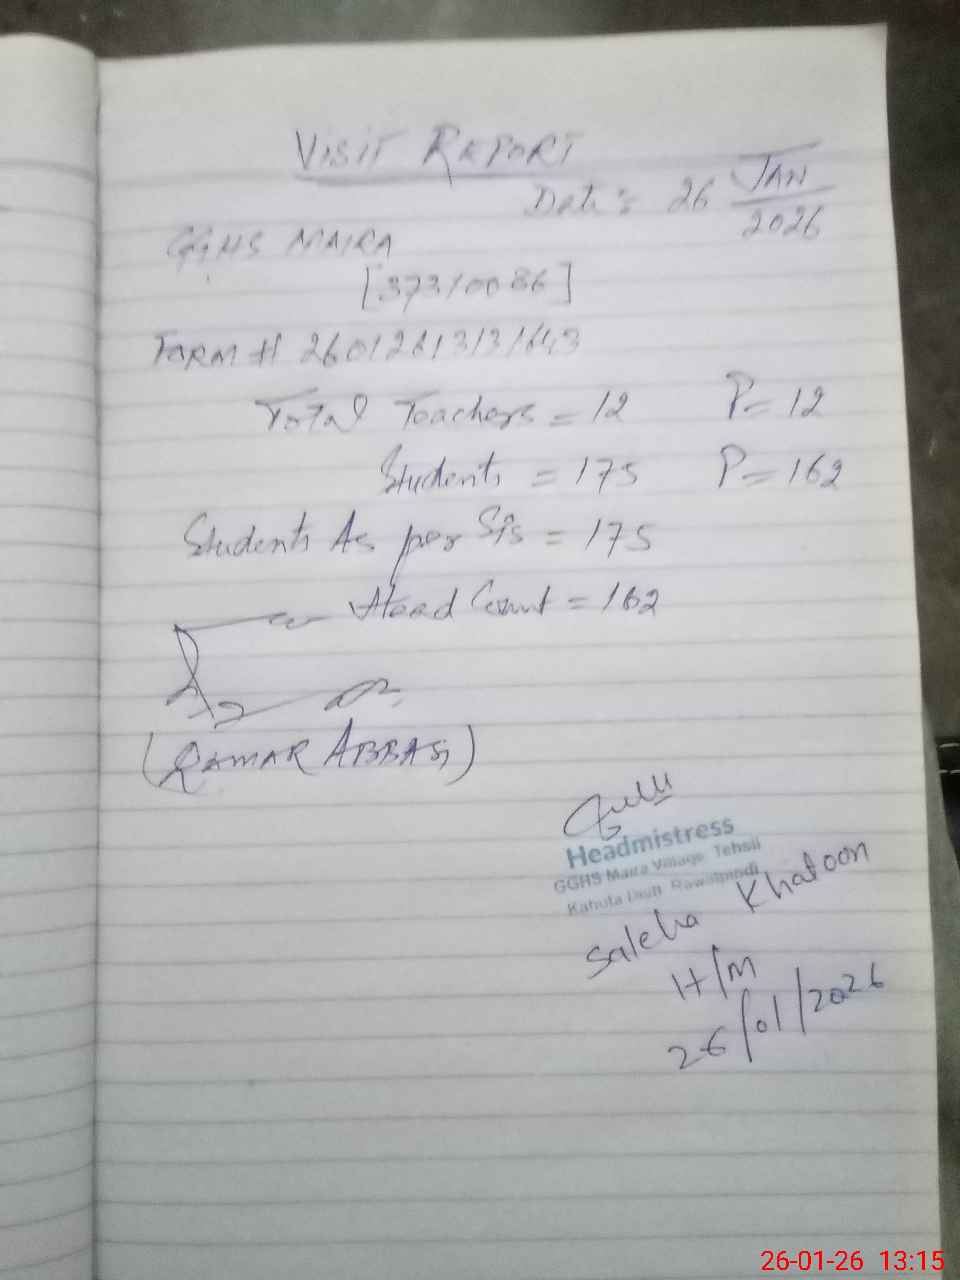 VISIT REPORT
Date: 26 JAN
2026
GGHS MAIRA
[37310086]
FORM # 26012613131643
Total Teachers = 12 P = 12
Students = 175 P = 162
Students As per Sis = 175
Head Count = 162
(QAMAR ABBASI)
Headmistress
GGHS Maira Village Tehsil
Kahuta Distt Rawalpindi
Saleha Khatoon
H/M
26/01/2026
26-01-26 13:15